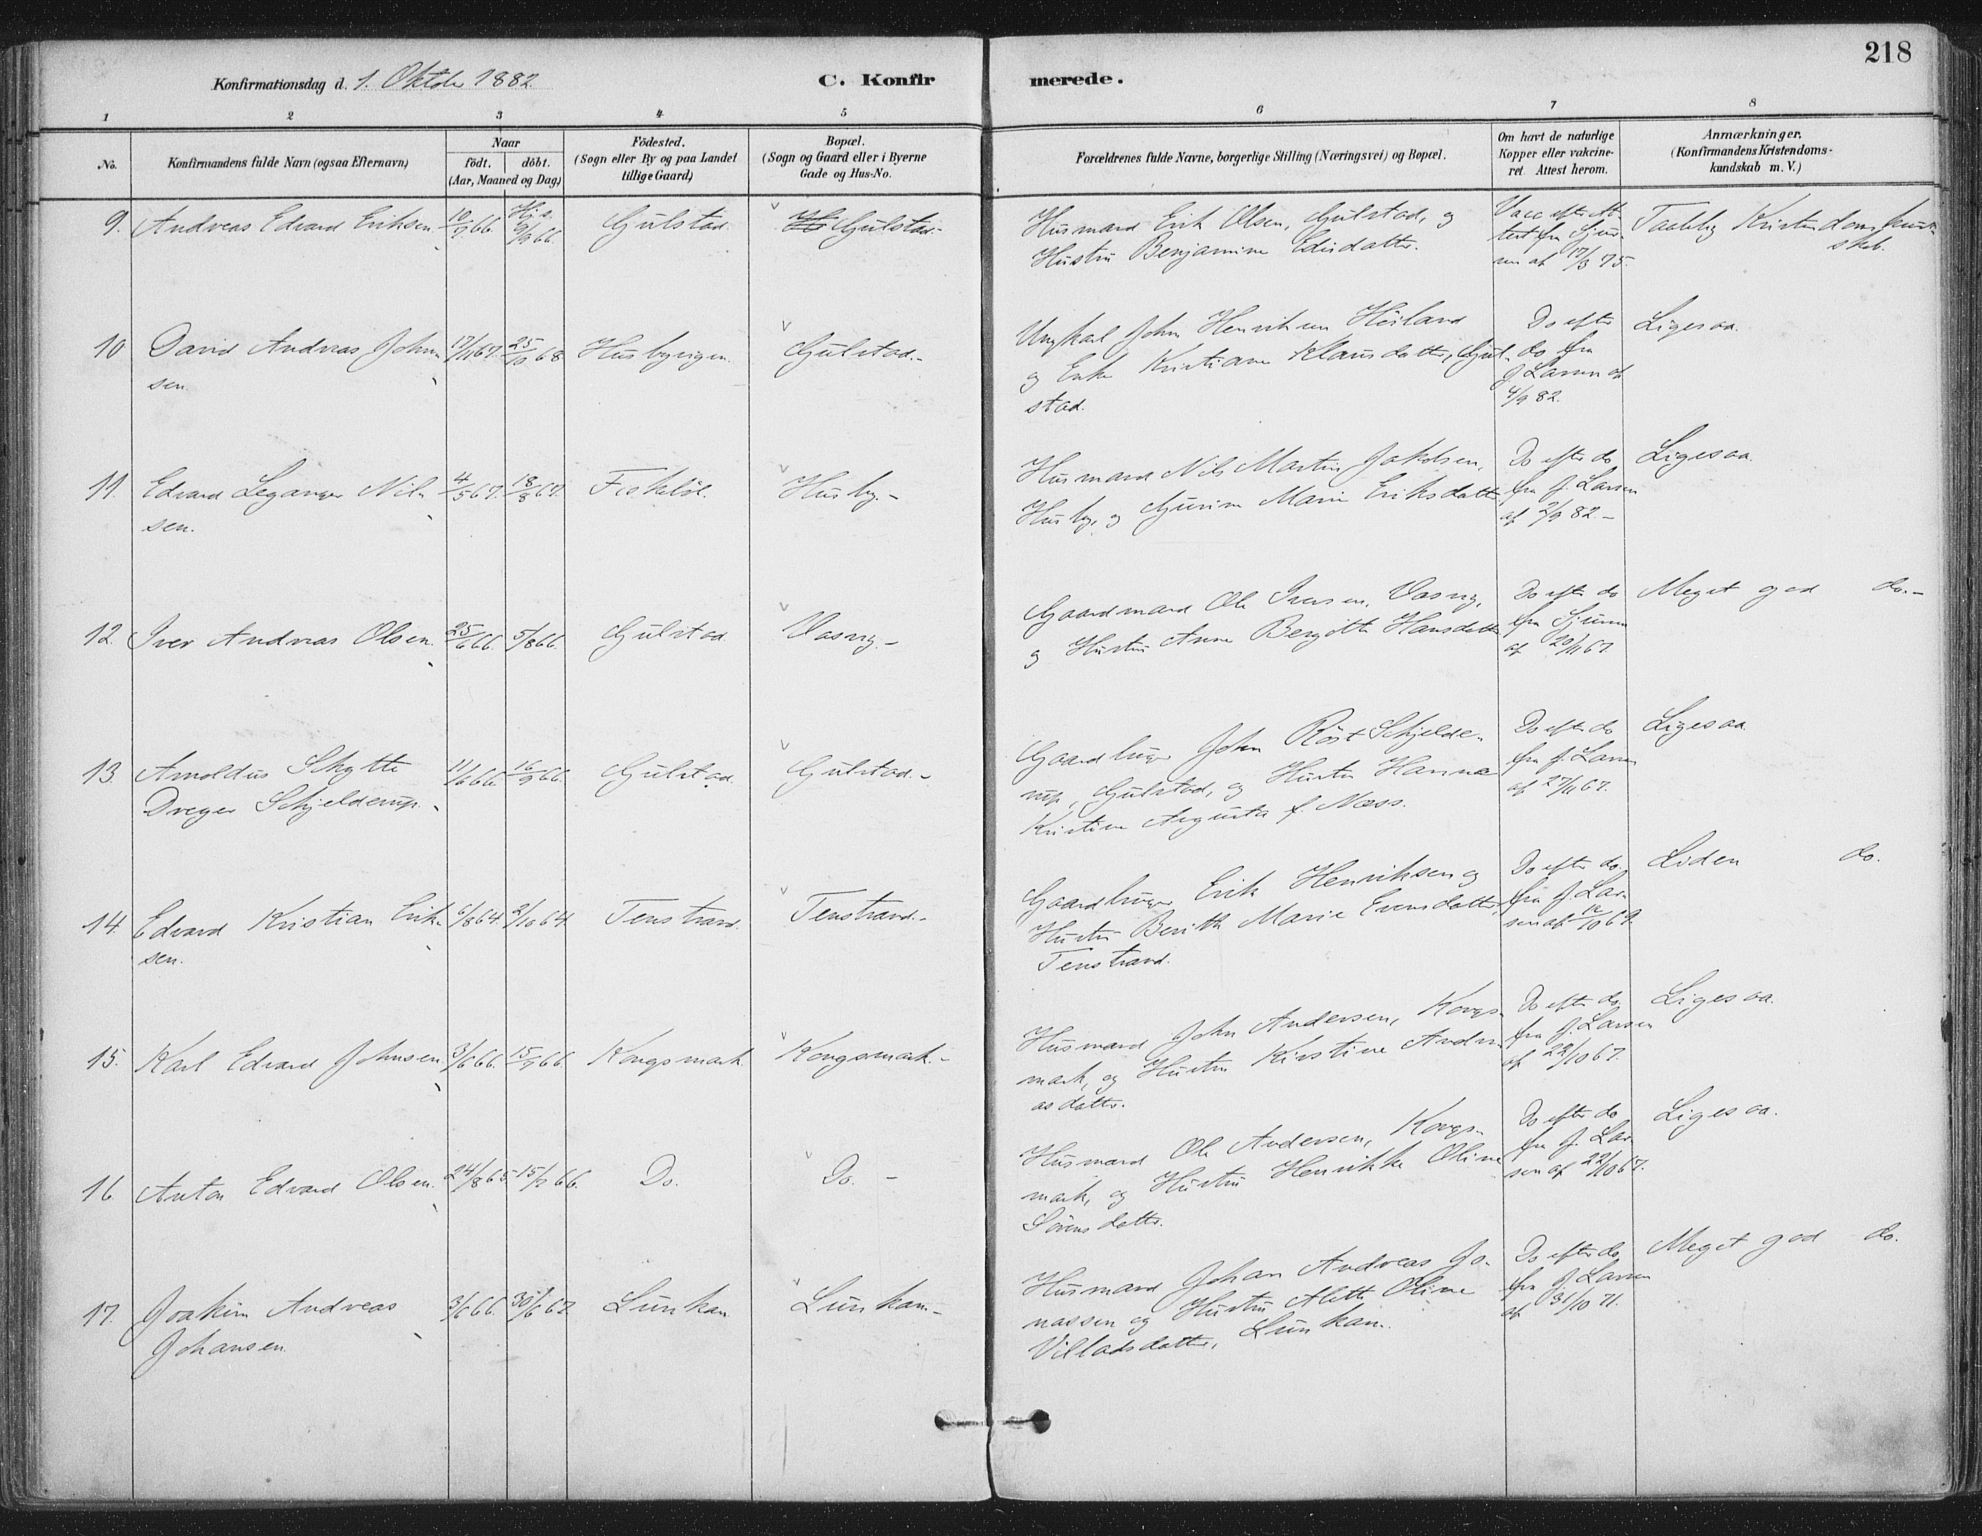 218
Konfirmationsdag d. 1. Oktobr 1882.
C. Konfirmerede.
1 2 3 4 5 6 7 8
No. Konfirmandens fulde Navn (ogsaa Efternavn)
Naar
födt. döbt.
(Aar, Maaned og Dag)
Födested.
(Sogn eller By og paa Landet
tillige Gaard)
Bopæl.
(Sogn og Gaard eller i Byerne
Gade og Hus-No.
Forældrenes fulde Navne, borgerlige Stilling (Næringsvei) og Bopæl.
Om havt de naturlige
Kopper eller vakcine-
ret. Attest herom.
Anmærkninger.
(Konfirmandens Kristendoms-
kundskab m. V.)
9. Andreas Edvard Eriksen. 10/9 66. 9/9 66. Gjulstad. Gjulstad.-
Husmand Erik Olsen, Gjulstad, og
Hustru Benjamine
Vacc efter At-
test fra
af 17/3 75.
Taalelig Kristendomskund-
skab.
10 David Andreas John-
sen.
17/11 67. 25/10 68 Husbyvigen. Gjulstad.-
Ungkarl John Henriksen Höiland
og Enke Kristiane Klausdatter, Gjul-
stad.
Do efter
do fra
J. Larsen af
4/9 82.
Ligesaa.
11. Edvard Leganger Nil-
sen.
4/5 67. 18/8 67. Fiskelöt. Husby.-
Husmand Nils Martin Jakobsen,
Husby, og Gjurine Marie Eriksdatter
Do efter do
fra J. Larsen
af 2/9 82-
Ligesaa.
12. Iver Andreas Olsen. 25/6 66. 5/8 66. Gjulstad. Vasvig.-
Gaardmand Ole Iversen, Vasvig,
og Hustru Anne Bergitte Hansdatter
Do efter do
fra
af 20/11 67.
Meget god do.-
13 Arnoldus Schytte
Dreyer Schjelderup.
11/6 66. 16/9 66. Gjulstad. Gjulstad.-
Gaardbruger John Röst Schjelde-
rup, Gjulstad, og Hustru Hanna
Kristine Augusta f. Næss.
Do efter do
fra J. Larsen
af 27/11 67.
Ligesaa
14. Edvard Kristian Erik-
sen.
6/8 64. 2/10 64. Tenstrand. Tenstrand.-
Gaardbruger Erik Henriksen og
Hustru Berith Marie Evensdatter,
Tenstrand.
Do efter do.
fra J. Lar-
sen af 12/10 69.
Liden do.
15. Karl Edvard Johnsen 3/6 66. 15/9 66. Kongsmark. Kongsmark.-
Husmand John Andersen, Kongs-
mark, og Hustru Kirstine Andre-
asdatter.
Do efter do.
fra J. Larsen
af 22/10 67.
Ligesaa.
16. Anton Edvard Olsen. 24/8 65. 15/7 66. Do. Do. -
Husmand Ole Andersen, Kongs-
mark, og Hustru Henrikke Oline
Sörensdatter.
Do efter do
fra J. Lar-
sen af 22/10 67.
Ligesaa.
17. Joakim Andreas
Johansen
3/6 66. 30/6 67. Lunkan Lunkan-
Husmand Johan Andreas Jo-
nassen og Hustru Aleth Oline
Villadsdatter, Lunkan.
Do efter do.
fra J. Larsen
af 31/10 71.
Meget god do.